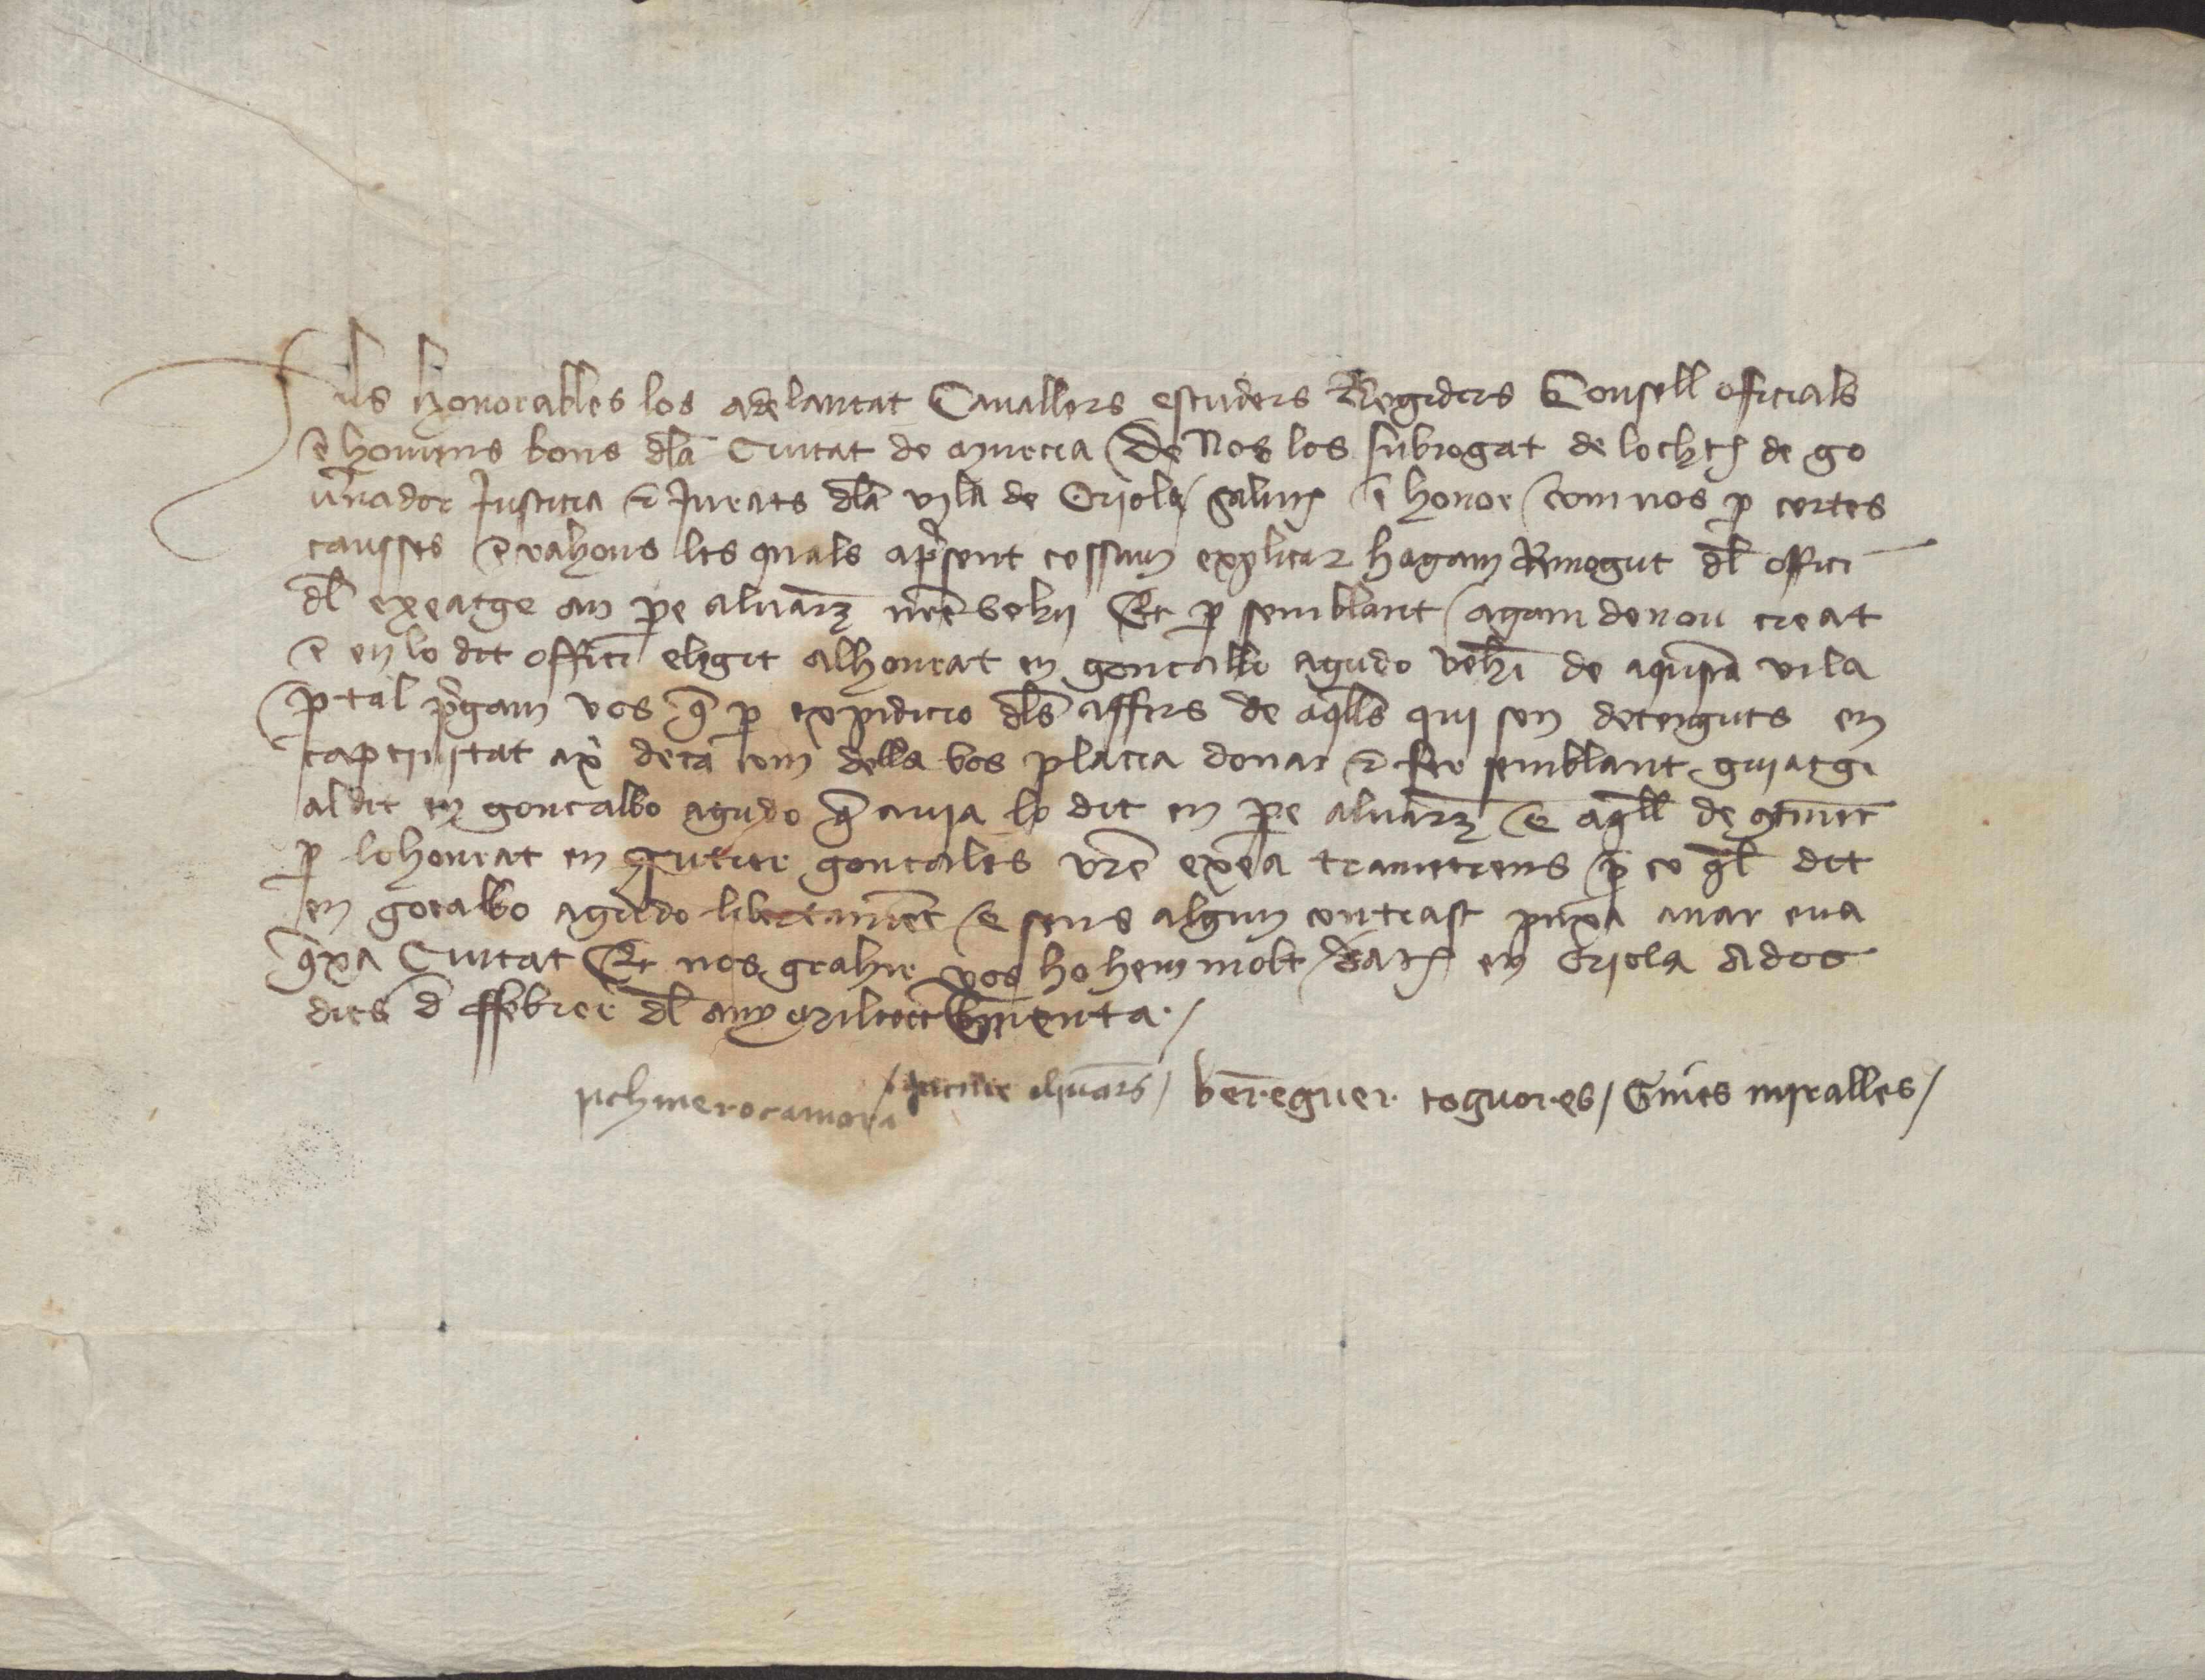 Als honorables los adelantat Cavallers escuders Regidors Consell officials
e homens bons dla Ciutat de Murcia De Nos los subrogat de lochtn de go
vnador Justicia e Jurats dla vila de Oriola salut e honor com nos p certes
causses e rahons les quals apsent cessam explicar hagam Remogut dl offici
dl exeatge an pe alvarz nre vehi Et p semblant agam de nou creat
e en lo dit offici elegit al honrat en goncalbo agudo vehi de aquesta vila
p tal pgam vos q p expedicio dls affers de aqlls qui son detenguts en
captivitat axi deca com della vos placia donar e fer semblant guiatge
al dit en goncalbo agudo q avia lo dit en pe alvarz e aqll de continent
p lo honrat en gutier goncales vre exea trametrens p co ql dit
en gocalbo agudo libertament e sens algun contrast puxa anar en a
qxa Ciutat Et nos grahir vos ho hem molt dat en Oriola a dos
dies d ffebrer dl any Mil cccc
berenguer toguores / Gines miralles /